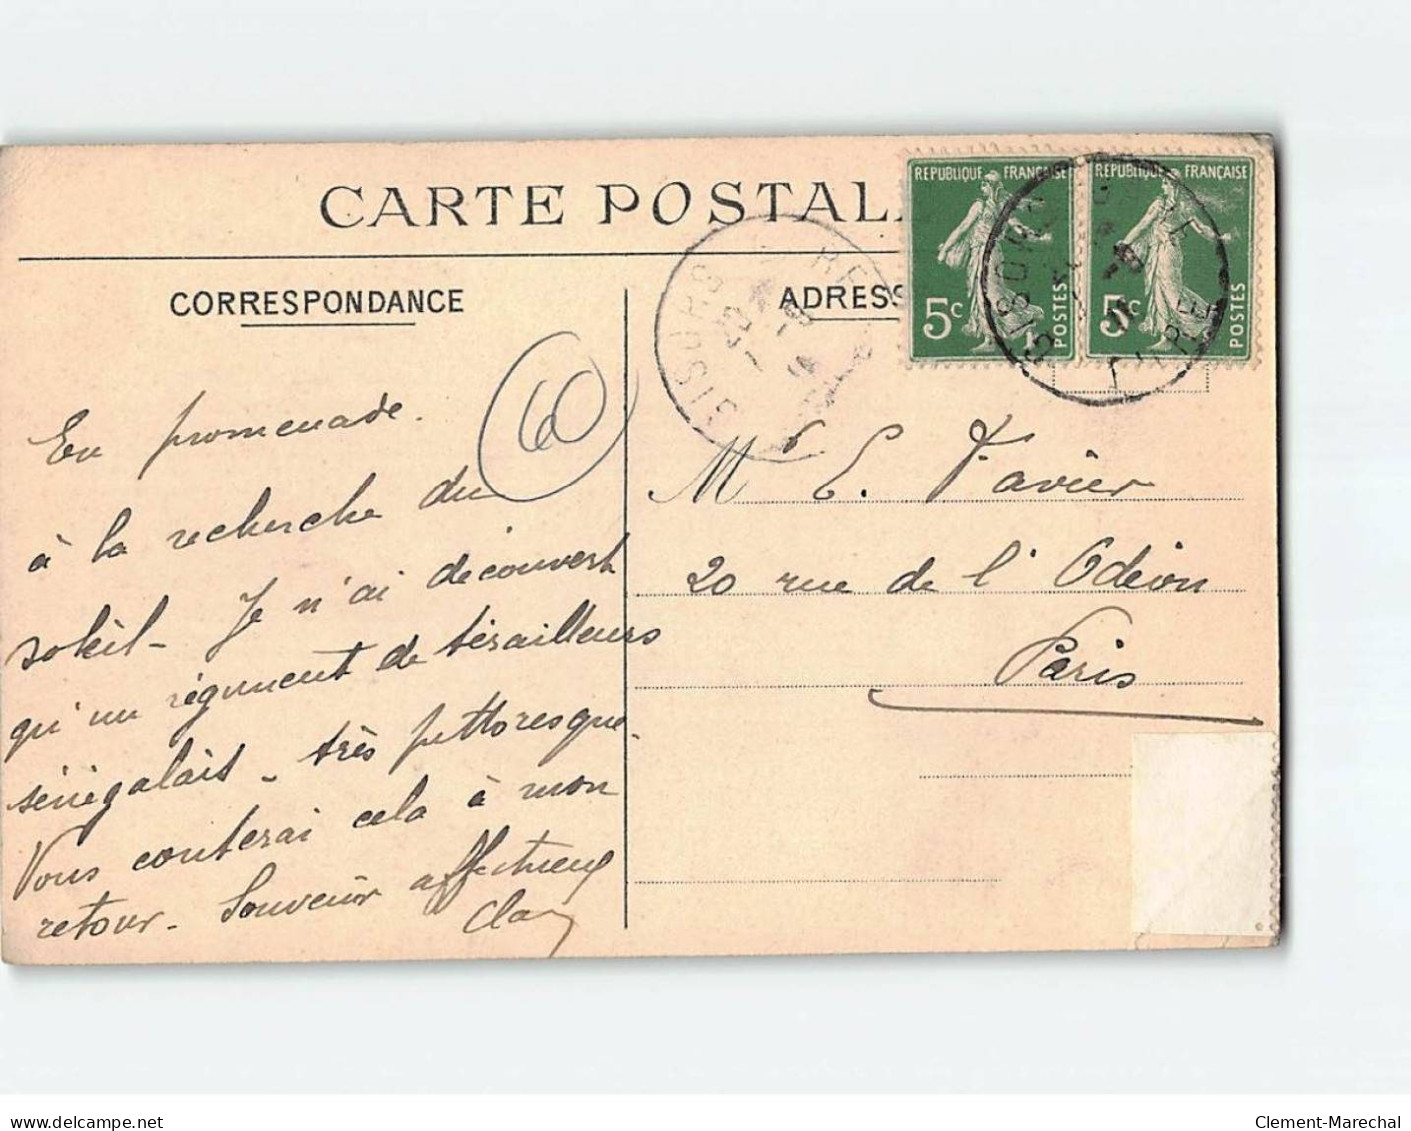 CARTE POSTAL
CORRESPONDANCE
ADRESS
REPUBLIQUE FRANÇAISE
5c
POSTES
REPUBLIQUE FRANÇAISE
5c
POSTES
GISORS
EURE
60
En promenade.
à la recherche du
soleil - Je n'ai découvert
qu'un régiment de tirailleurs
sénégalais - très pittoresque.
Vous conterai cela à mon
retour. Souvenir affectueux
M E. Vavier
20 rue de l'Odéon
Paris
delcampe.net
Clement-Marechal